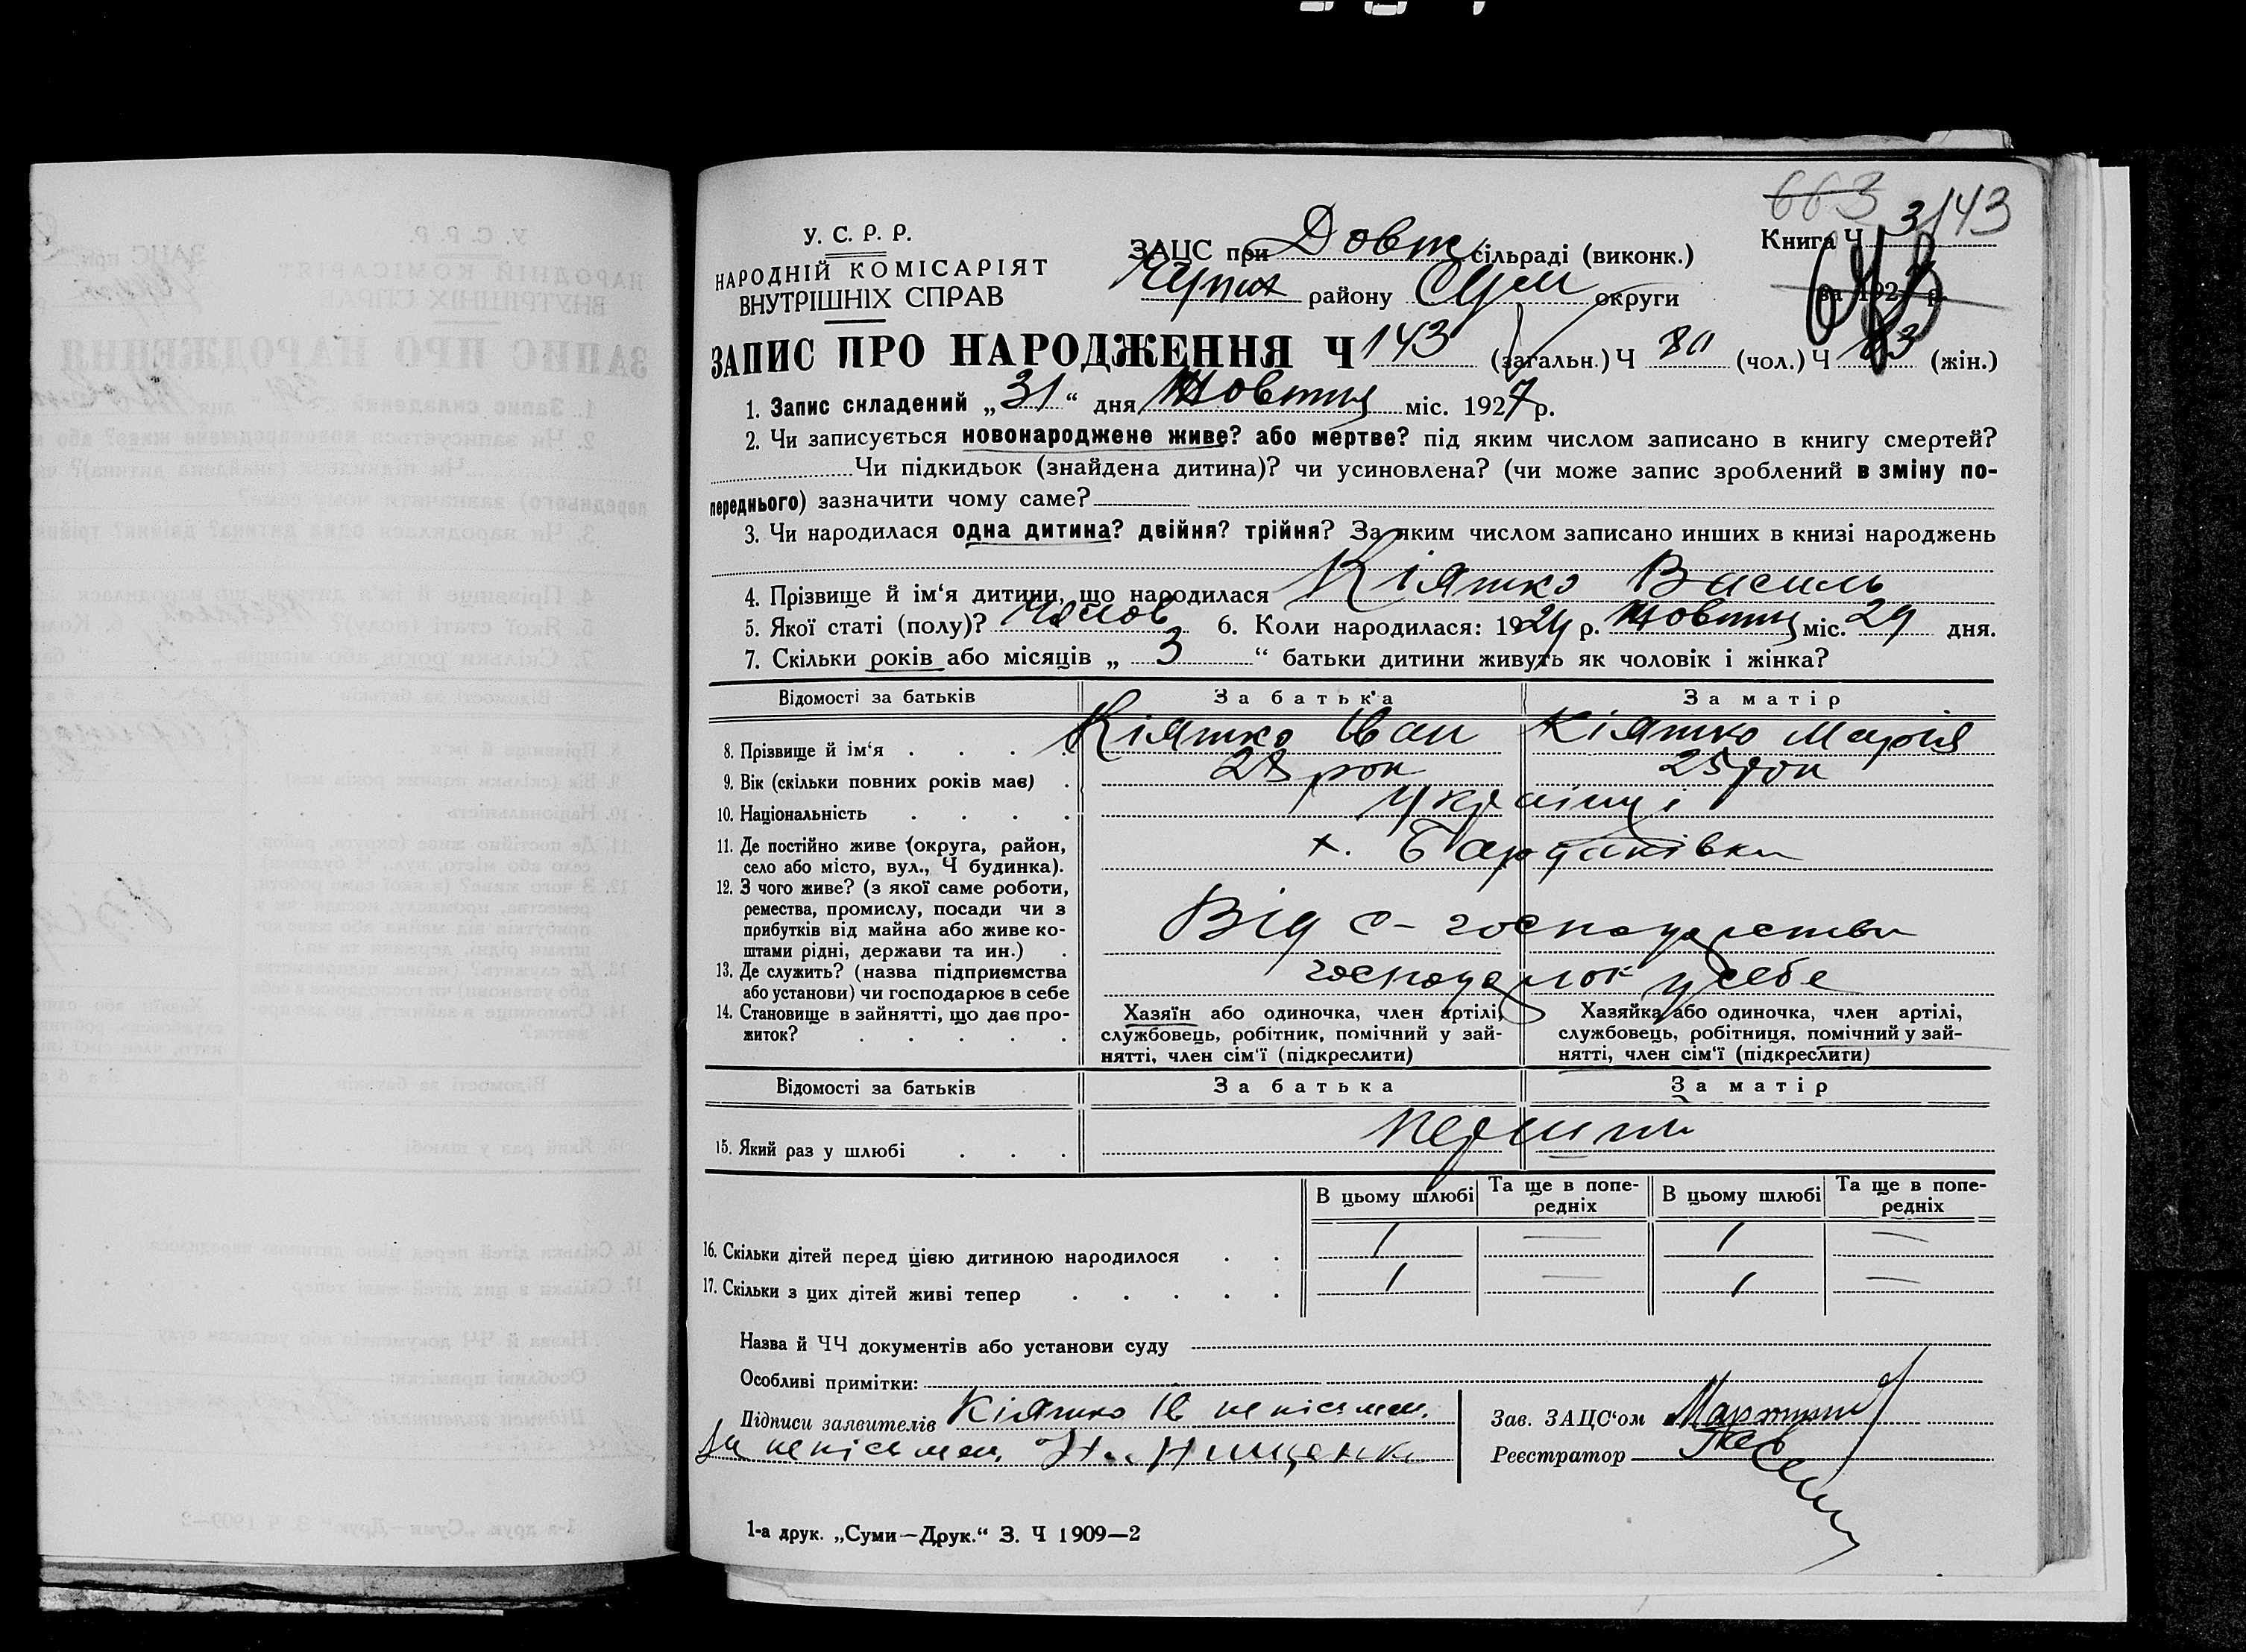 663
У. С. Р. Р.
НАРОДНІЙ КОМІСАРІЯТ
ВНУТРІШНІХ СПРАВ
ЗАЦС при Довж сільраді (виконк.)
району Сум округи
Книга Ч 3/143
за 192 р.
ЗАПИС ПРО НАРОДЖЕННЯ Ч 143 (загальн.) Ч 80 (чол.) Ч 63 (жін.)
1. Запис складений „31“ дня Жовтня міс. 1927 р.
2. Чи записується новонароджене живе? або мертве? під яким числом записано в книгу смертей?
Чи підкидьок (знайдена дитина)? чи усиновлена? (чи може запис зроблений в зміну по-
переднього) зазначити чому саме?
3. Чи народилася одна дитина? двійня? трійня? За яким числом записано инших в книзі народжень
4. Прізвище й ім‘я дитини, що народилася Кіяшко Василь
5. Якої статі (полу)? Чолов 6. Коли народилася: 192 р. Жовтня міс. 29 дня.
7. Скільки років або місяців „ 3 “ батьки дитини живуть як чоловік і жінка?
Відомості за батьків За батька За матір
8. Прізвище й ім‘я . . . . Кіяшко Іван Кіяшко Марія
9. Вік (скільки повних років має) . 28 рок 25 рок
10. Національність . . . . українці
11. Де постійно живе (округа, район,
село або місто, вул., Ч будинка).
х.
12. З чого живе? (з якої саме роботи,
ремества, промислу, посади чи з
прибутків від майна або живе ко-
штами рідні, держави та ин.) .
Від с-господарства
13. Де служить? (назва підприємства
або установи) чи господарює в себе
у себе
14. Становище в зайнятті, що дає про-
житок? . . . . .
Хазяїн або одиночка, член артілі,
службовець, робітник, помічний у зай-
нятті, член сім‘ї (підкреслити)
Хазяйка або одиночка, член артілі,
службовець, робітниця, помічний у зай-
нятті, член сім‘ї (підкреслити)
Відомості за батьків За батька За матір
15. Який раз у шлюбі . . . перший
В цьому шлюбі Та ще в попе-
редніх В цьому шлюбі Та ще в попе-
редніх
16. Скільки дітей перед цією дитиною народилося . . 1 — 1 —
17. Скільки з цих дітей живі тепер . . . . . 1 — 1 —
Назва й ЧЧ документів або установи суду
Особливі примітки:
Підписи заявителів Кіяшко Ів неписьмен.
За неписьмен.
Зав. ЗАЦС‘ом
Реєстратор
1-а друк. „Суми—Друк.“ З. Ч 1909—2